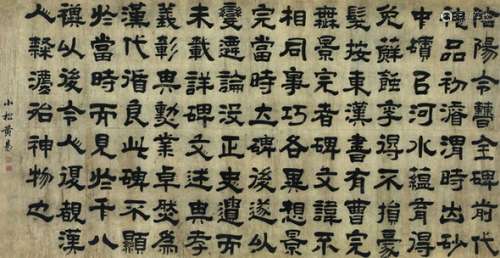 郃陽令曹全碑前代
絶品初濬渭時出砂
中磧以河水蘊育得
免蘚蝕得不損豪
髮按東漢書有曹完
無景完者碑文諱不
相同事巧各異想景
完當時立碑後遂以
變遷論沒正史遺而
未載詳碑文述典孝
義彰典勳業卓然為
漢代循良此碑不顯
於當時而見於千八
禩以後令人復覩漢
人隸灋洵神物也
小松黃易